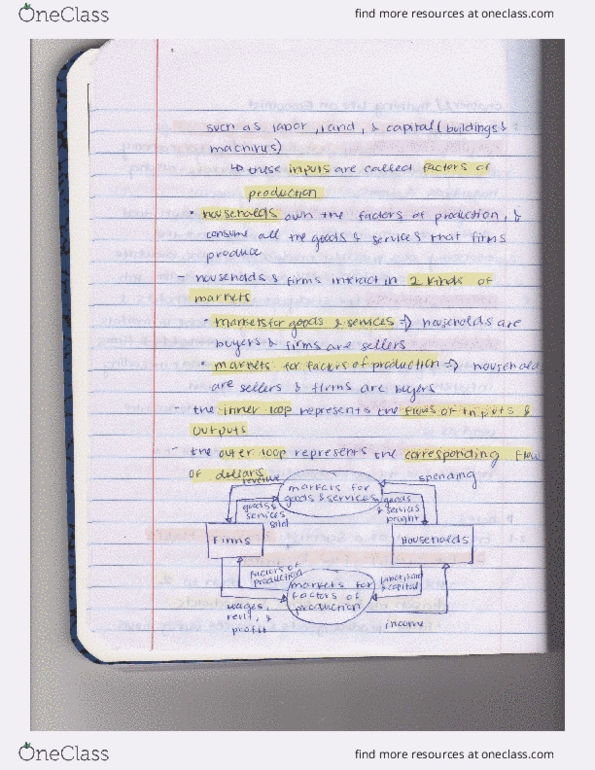 OneClass
find more resources at oneclass.com
such as labor, land, & capital (buildings &
machines)
↳ these inputs are called factors of
production
• households own the factors of production, &
consume all the goods & services that firms
produce
- households & firms interact in 2 kinds of
markets
• markets for goods & services => households are
buyers & firms are sellers
• markets for factors of production => household
are sellers & firms are buyers
- the inner loop represents the flows of inputs &
outputs
- the outer loop represents the corresponding flow
of dollars
revenue
markets for
goods & services
spending
goods &
services
sold
goods
& services
bought
Firms
Households
factors of
production
markets for
factors of
production
labor, land
& capital
wages,
rent, &
profit
income
OneClass
find more resources at oneclass.com